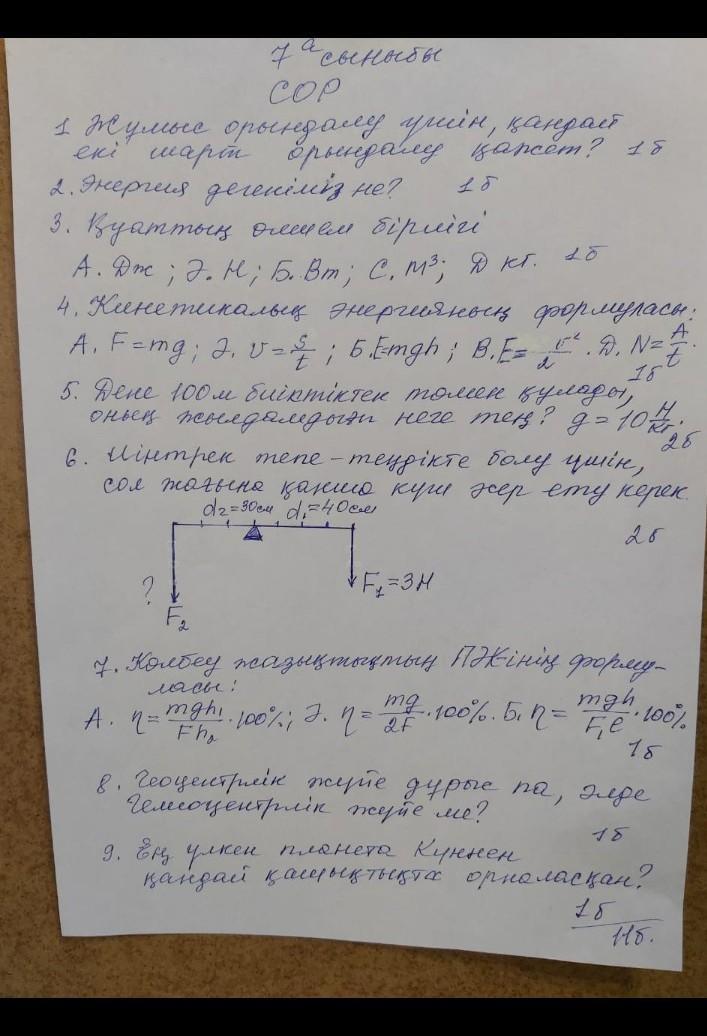 7 а сыныбы
СОР
1 Жұмыс орындалу үшін, қандай
екі шарт орындалу қажет? 1б
2. Энергия дегеніміз не? 1б
3. Қуаттың өлшем бірлігі
А. Дж ; Ә. Н ; Б. Вт ; С. м³; Д кг. 1б
4. Кинетикалық энергияның формуласы:
А. F = mg ; Ә. υ = s/t ; Б. E=mgh ; В. E = υ²/2 . Д. N = A/t .
1б
5. Дене 100м биіктіктен төмен құлады,
оның жылдамдығы неге тең? g = 10 Н/кг.
2б
6. Иінтрек тепе-теңдікте болу үшін,
сол жағына қанша күш әсер ету керек.
d₂=30см d₁=40см
2б
? F₁ = 3Н
F₂
7. Көлбеу жазықтықтың ПӘК-інің форму-
ласы:
А. η = mgh₁/Fh₂ · 100%; Ә. η = mg/2F · 100%. Б. η = mgh/F₁l · 100%
1б
8. Геоцентрлік жүйе дұрыс па, әлде
Гелиоцентрлік жүйе ме?
1б
9. Ең үлкен планета Күннен
қандай қашықтықта орналасқан?
1б
11б.